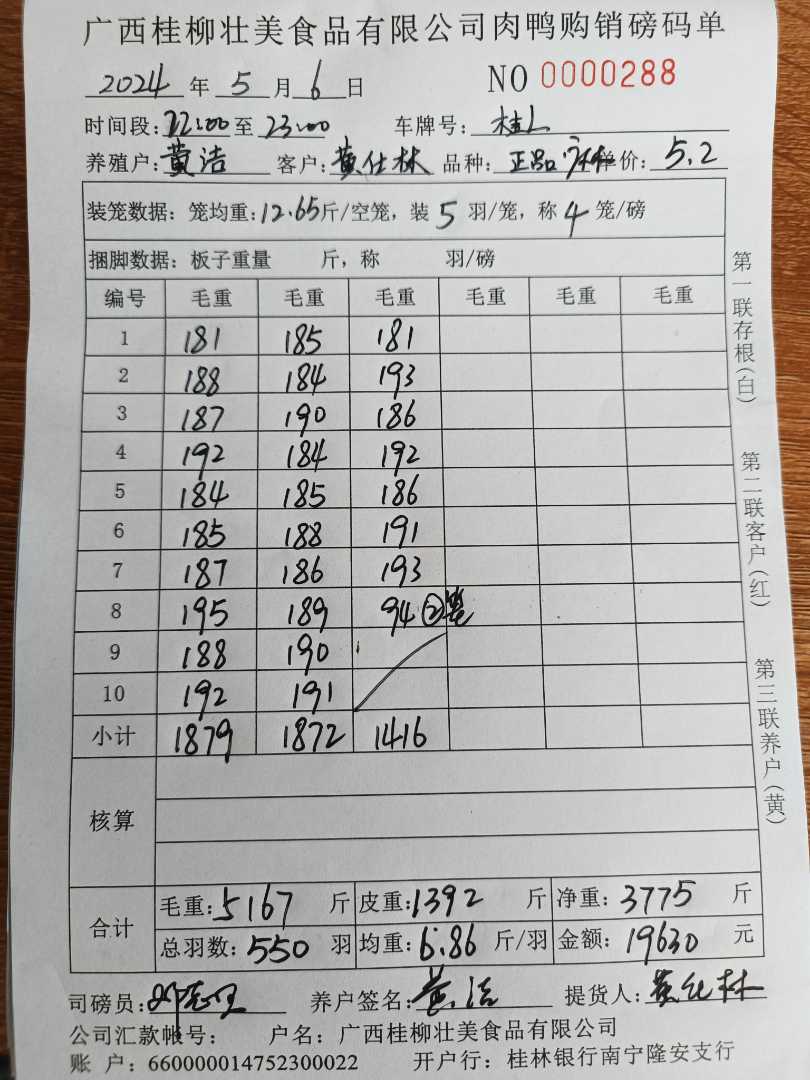 广西桂柳壮美食品有限公司肉鸭购销磅码单
2024 年 5 月 6 日 NO 0000288
时间段: 22:00 至 23:00 车牌号: 桂L
养殖户: 黄洁 客户: 黄仕林 品种: 正品 单价: 5.2
装笼数据: 笼均重: 12.65 斤/空笼, 装 5 羽/笼, 称 4 笼/磅
捆脚数据: 板子重量 斤, 称 羽/磅
编号 毛重 毛重 毛重 毛重 毛重 毛重
1 181 185 181
2 188 184 193
3 187 190 186
4 192 184 192
5 184 185 186
6 185 188 191
7 187 186 193
8 195 189 94 ②笼
9 188 190
10 192 191
小计 1879 1872 1416
核算
合计
毛重: 5167 斤 皮重: 1392 斤 净重: 3775 斤
总羽数: 550 羽 均重: 6.86 斤/羽 金额: 19630 元
司磅员: 养户签名: 黄洁 提货人: 黄仕林
公司汇款帐号: 户名: 广西桂柳壮美食品有限公司
账 户: 660000014752300022 开户行: 桂林银行南宁隆安支行
第一联存根(白)
第二联客户(红)
第三联养户(黄)